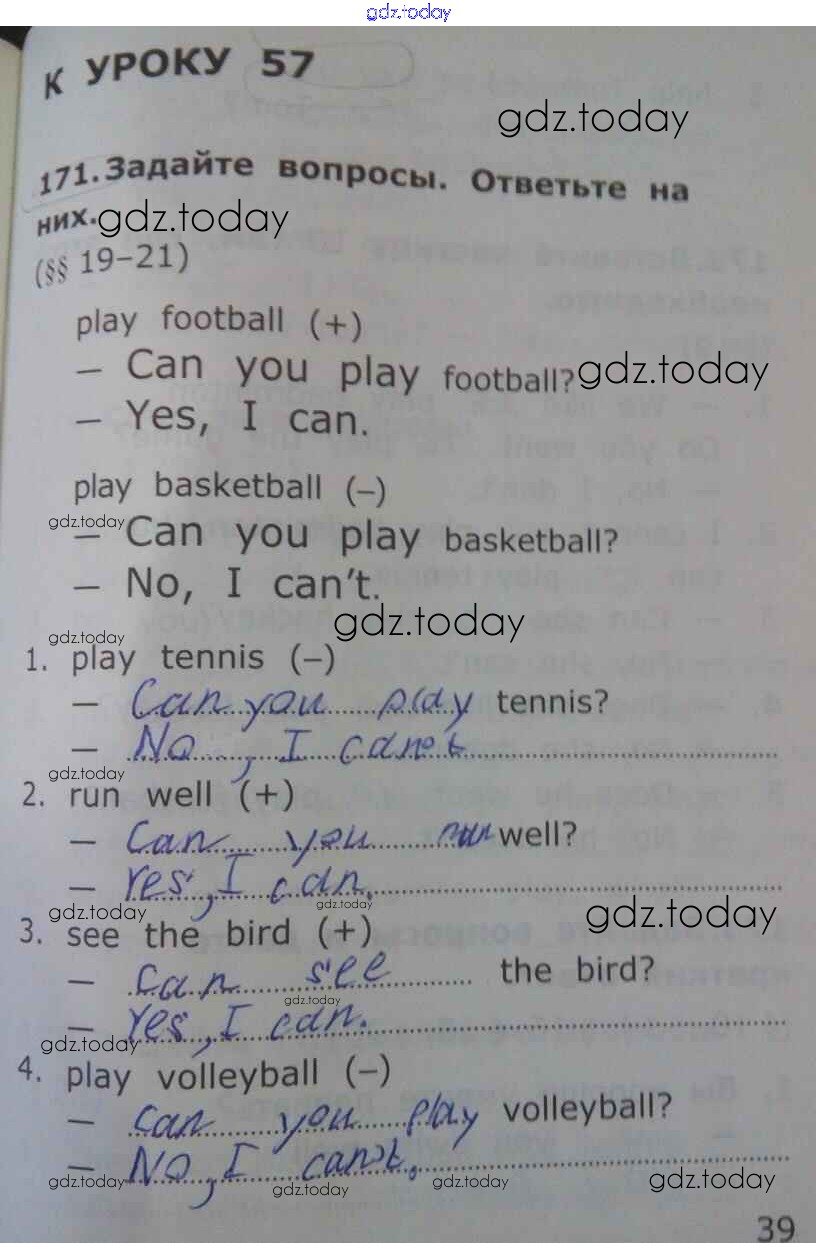 gdz.today
К УРОКУ 57
gdz.today
171. Задайте вопросы. Ответьте на
них. gdz.today
(§§ 19–21)
play football (+)
– Can you play football? gdz.today
– Yes, I can.
play basketball (–)
gdz.today
– Can you play basketball?
– No, I can't.
gdz.today gdz.today
1. play tennis (–)
– Can you play tennis?
– No, I can't
gdz.today
2. run well (+)
– Can you run well?
– Yes, I can.
gdz.today gdz.today gdz.today
3. see the bird (+)
– can see the bird?
gdz.today
– Yes, I can.
gdz.today
4. play volleyball (–)
– can you play volleyball?
– No, I can't.
gdz.today gdz.today gdz.today gdz.today
39